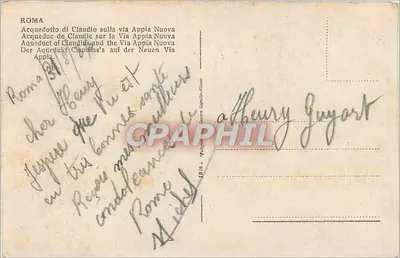 ROMA
Acquedotto di Claudio sulla via Appia Nuova
Acqueduc de Claudie sur la Via Appia Nuova
Aqueduct of Claudius and the Via Appia Nuova
Der Aqueduct Claudius's auf der Neuen Via
Appia.
Rome
cher Henry
J'espère que tu est
en très bonnes santé
Reçois mes meilleurs
condoléances de
Rome
Michel
à Henry Guyart
CPAPHIL